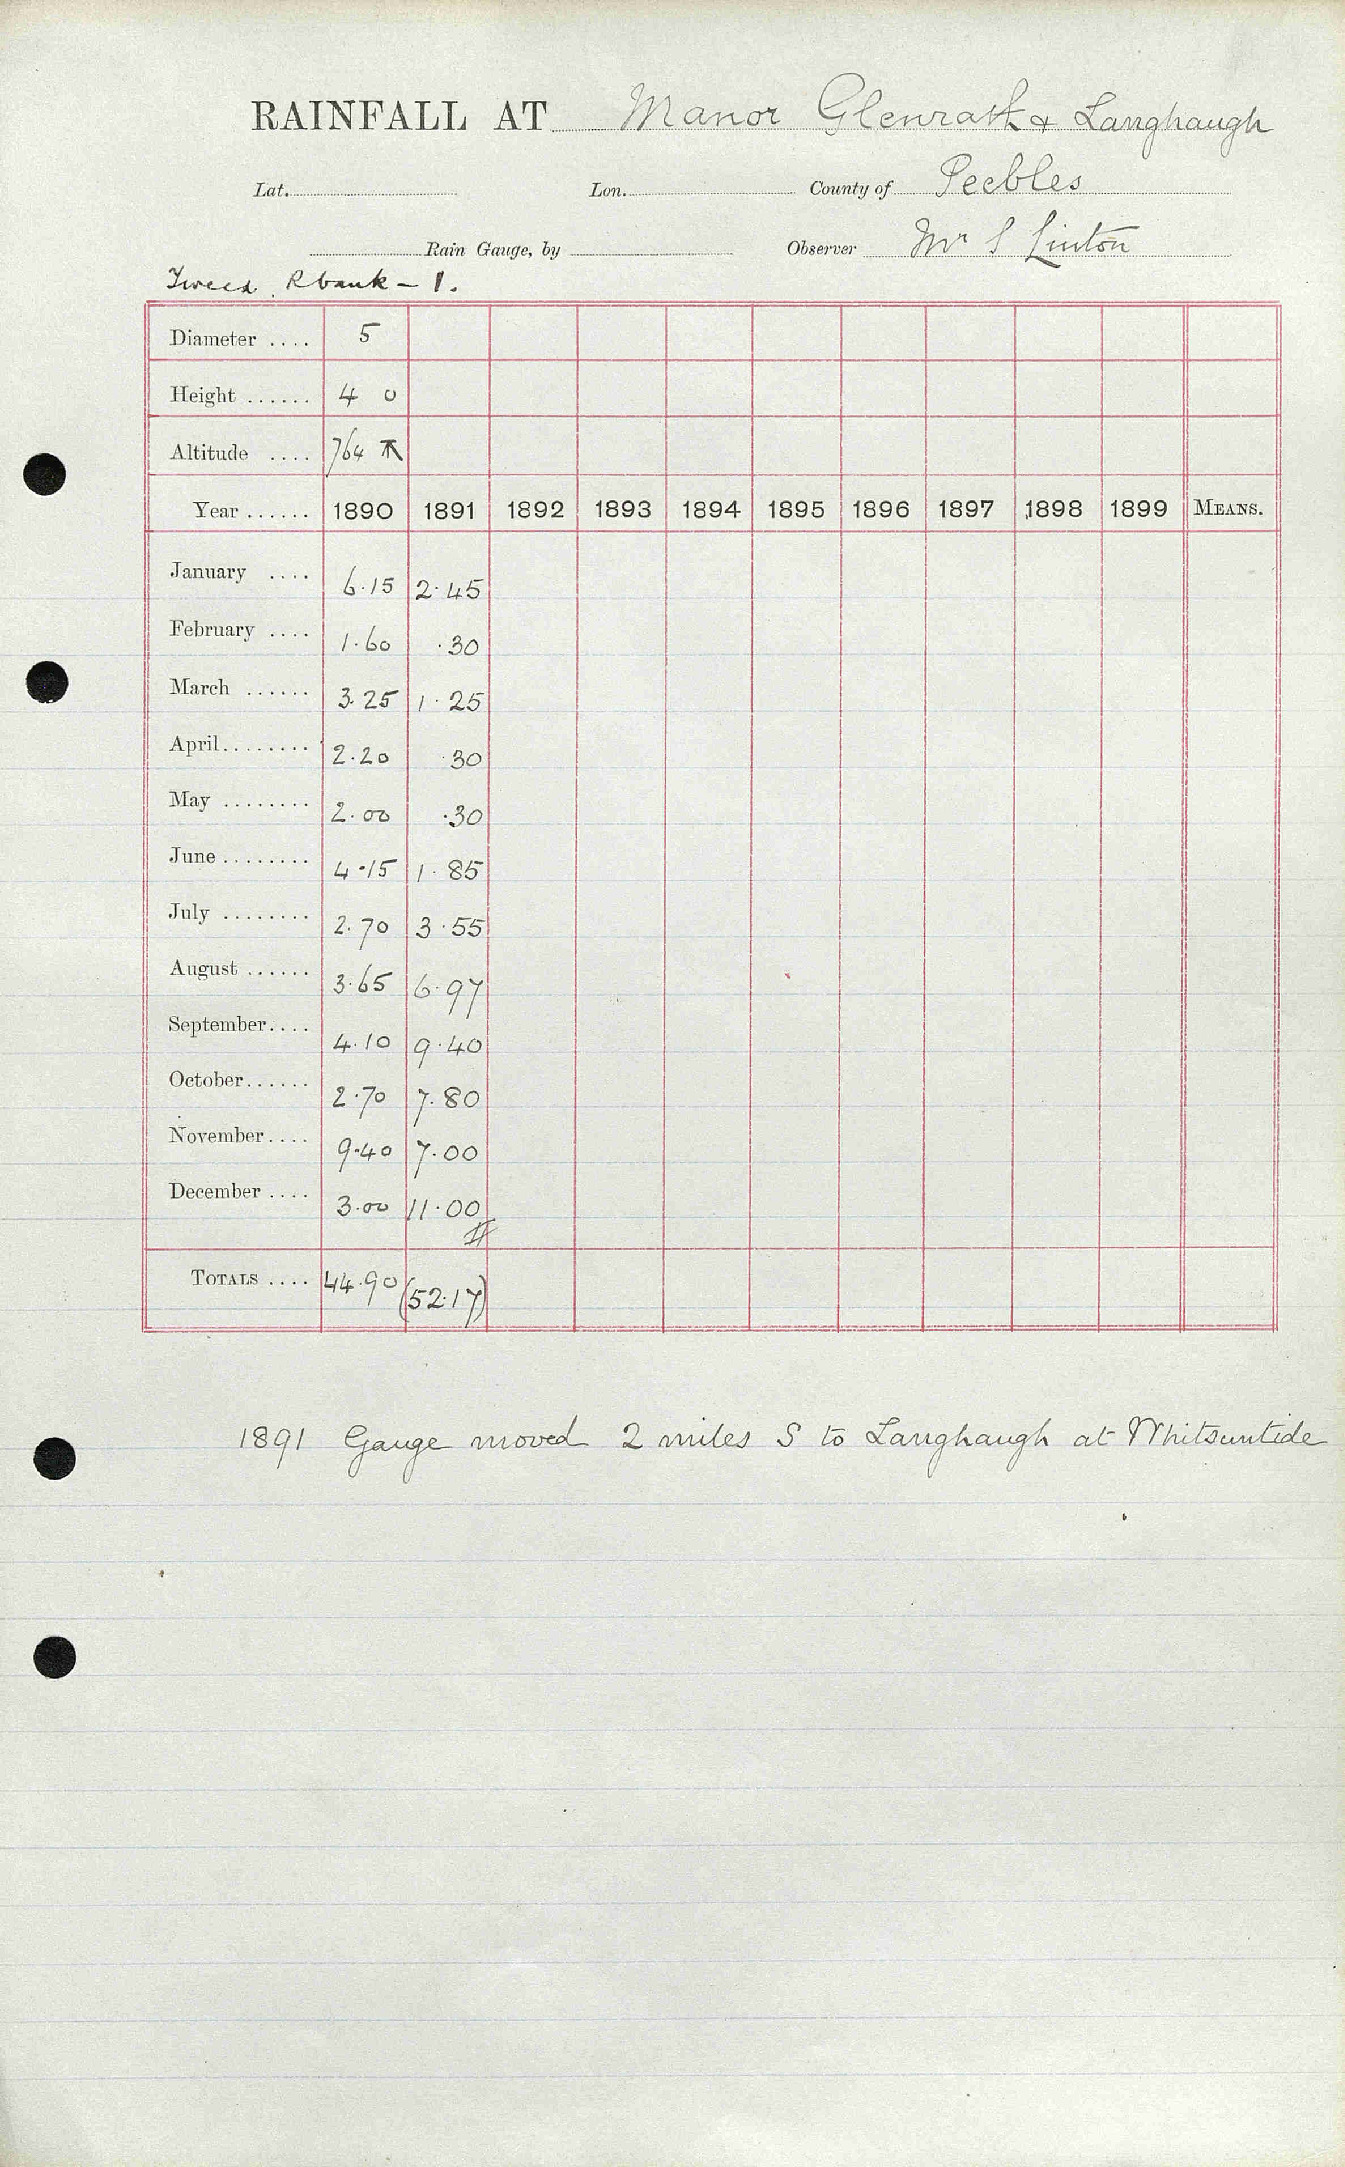 RAINFALL AT Manor Glenrath & Langhaugh
Lat. Lon. County of Peebles
Rain Gauge, by Observer Mr S Linton
Tweed. R bank – 1.
Diameter .... 5
Height ...... 4 0
Altitude .... 764
Year ...... 1890 1891 1892 1893 1894 1895 1896 1897 1898 1899 MEANS.
January .... 6.15 2.45
February .... 1.60 .30
March ...... 3.25 1.25
April........ 2.20 .30
May ........ 2.00 .30
June ........ 4.15 1.85
July ........ 2.70 3.55
August ...... 3.65 6.97
September.... 4.10 9.40
October...... 2.70 7.80
November.... 9.40 7.00
December .... 3.00 11.00
TOTALS .... 44.90 (52.17)
1891 Gauge moved 2 miles S to Langhaugh at Whitsuntide